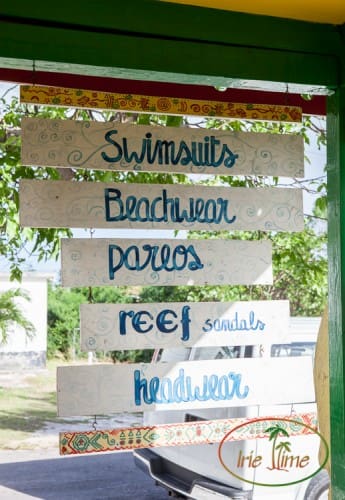 Swimsuits
Beachwear
pareos
reef sandals
headwear
Irie Time